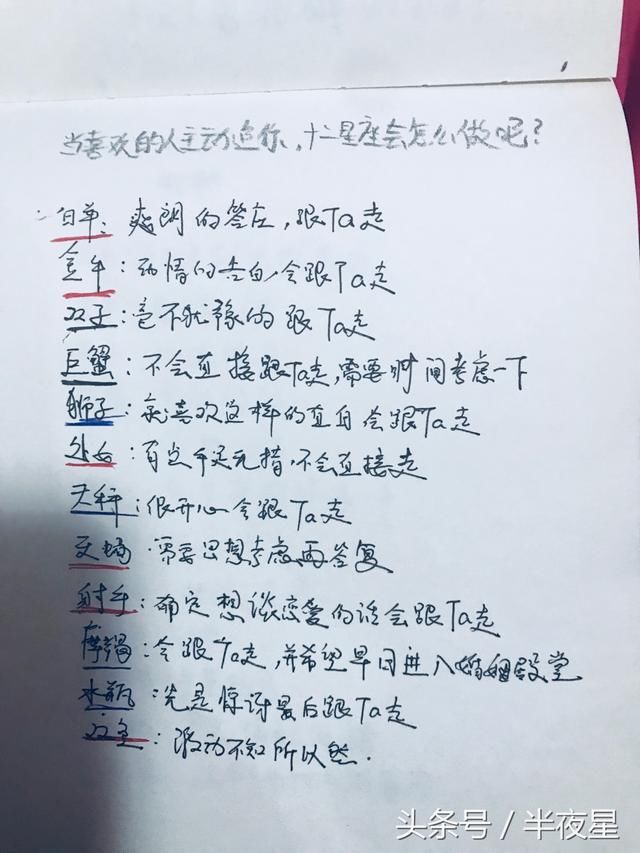 当喜欢的人主动追你,十二星座会怎么做呢?
白羊:爽朗的答应,跟Ta走
金牛:动情的告白,会跟Ta走
双子:毫不犹豫的跟Ta走
巨蟹:不会直接跟Ta走,需要时间考虑一下
狮子:就喜欢这样的直白会跟Ta走
处女:有点手足无措,不会直接走
天秤:很开心会跟Ta走
天蝎:需要思想考虑再答复
射手:确定想谈恋爱的话会跟Ta走
摩羯:会跟Ta走,并希望早日进入婚姻殿堂
水瓶:先是惊讶最后跟Ta走
双鱼:激动不知所以然.
头条号/半夜星